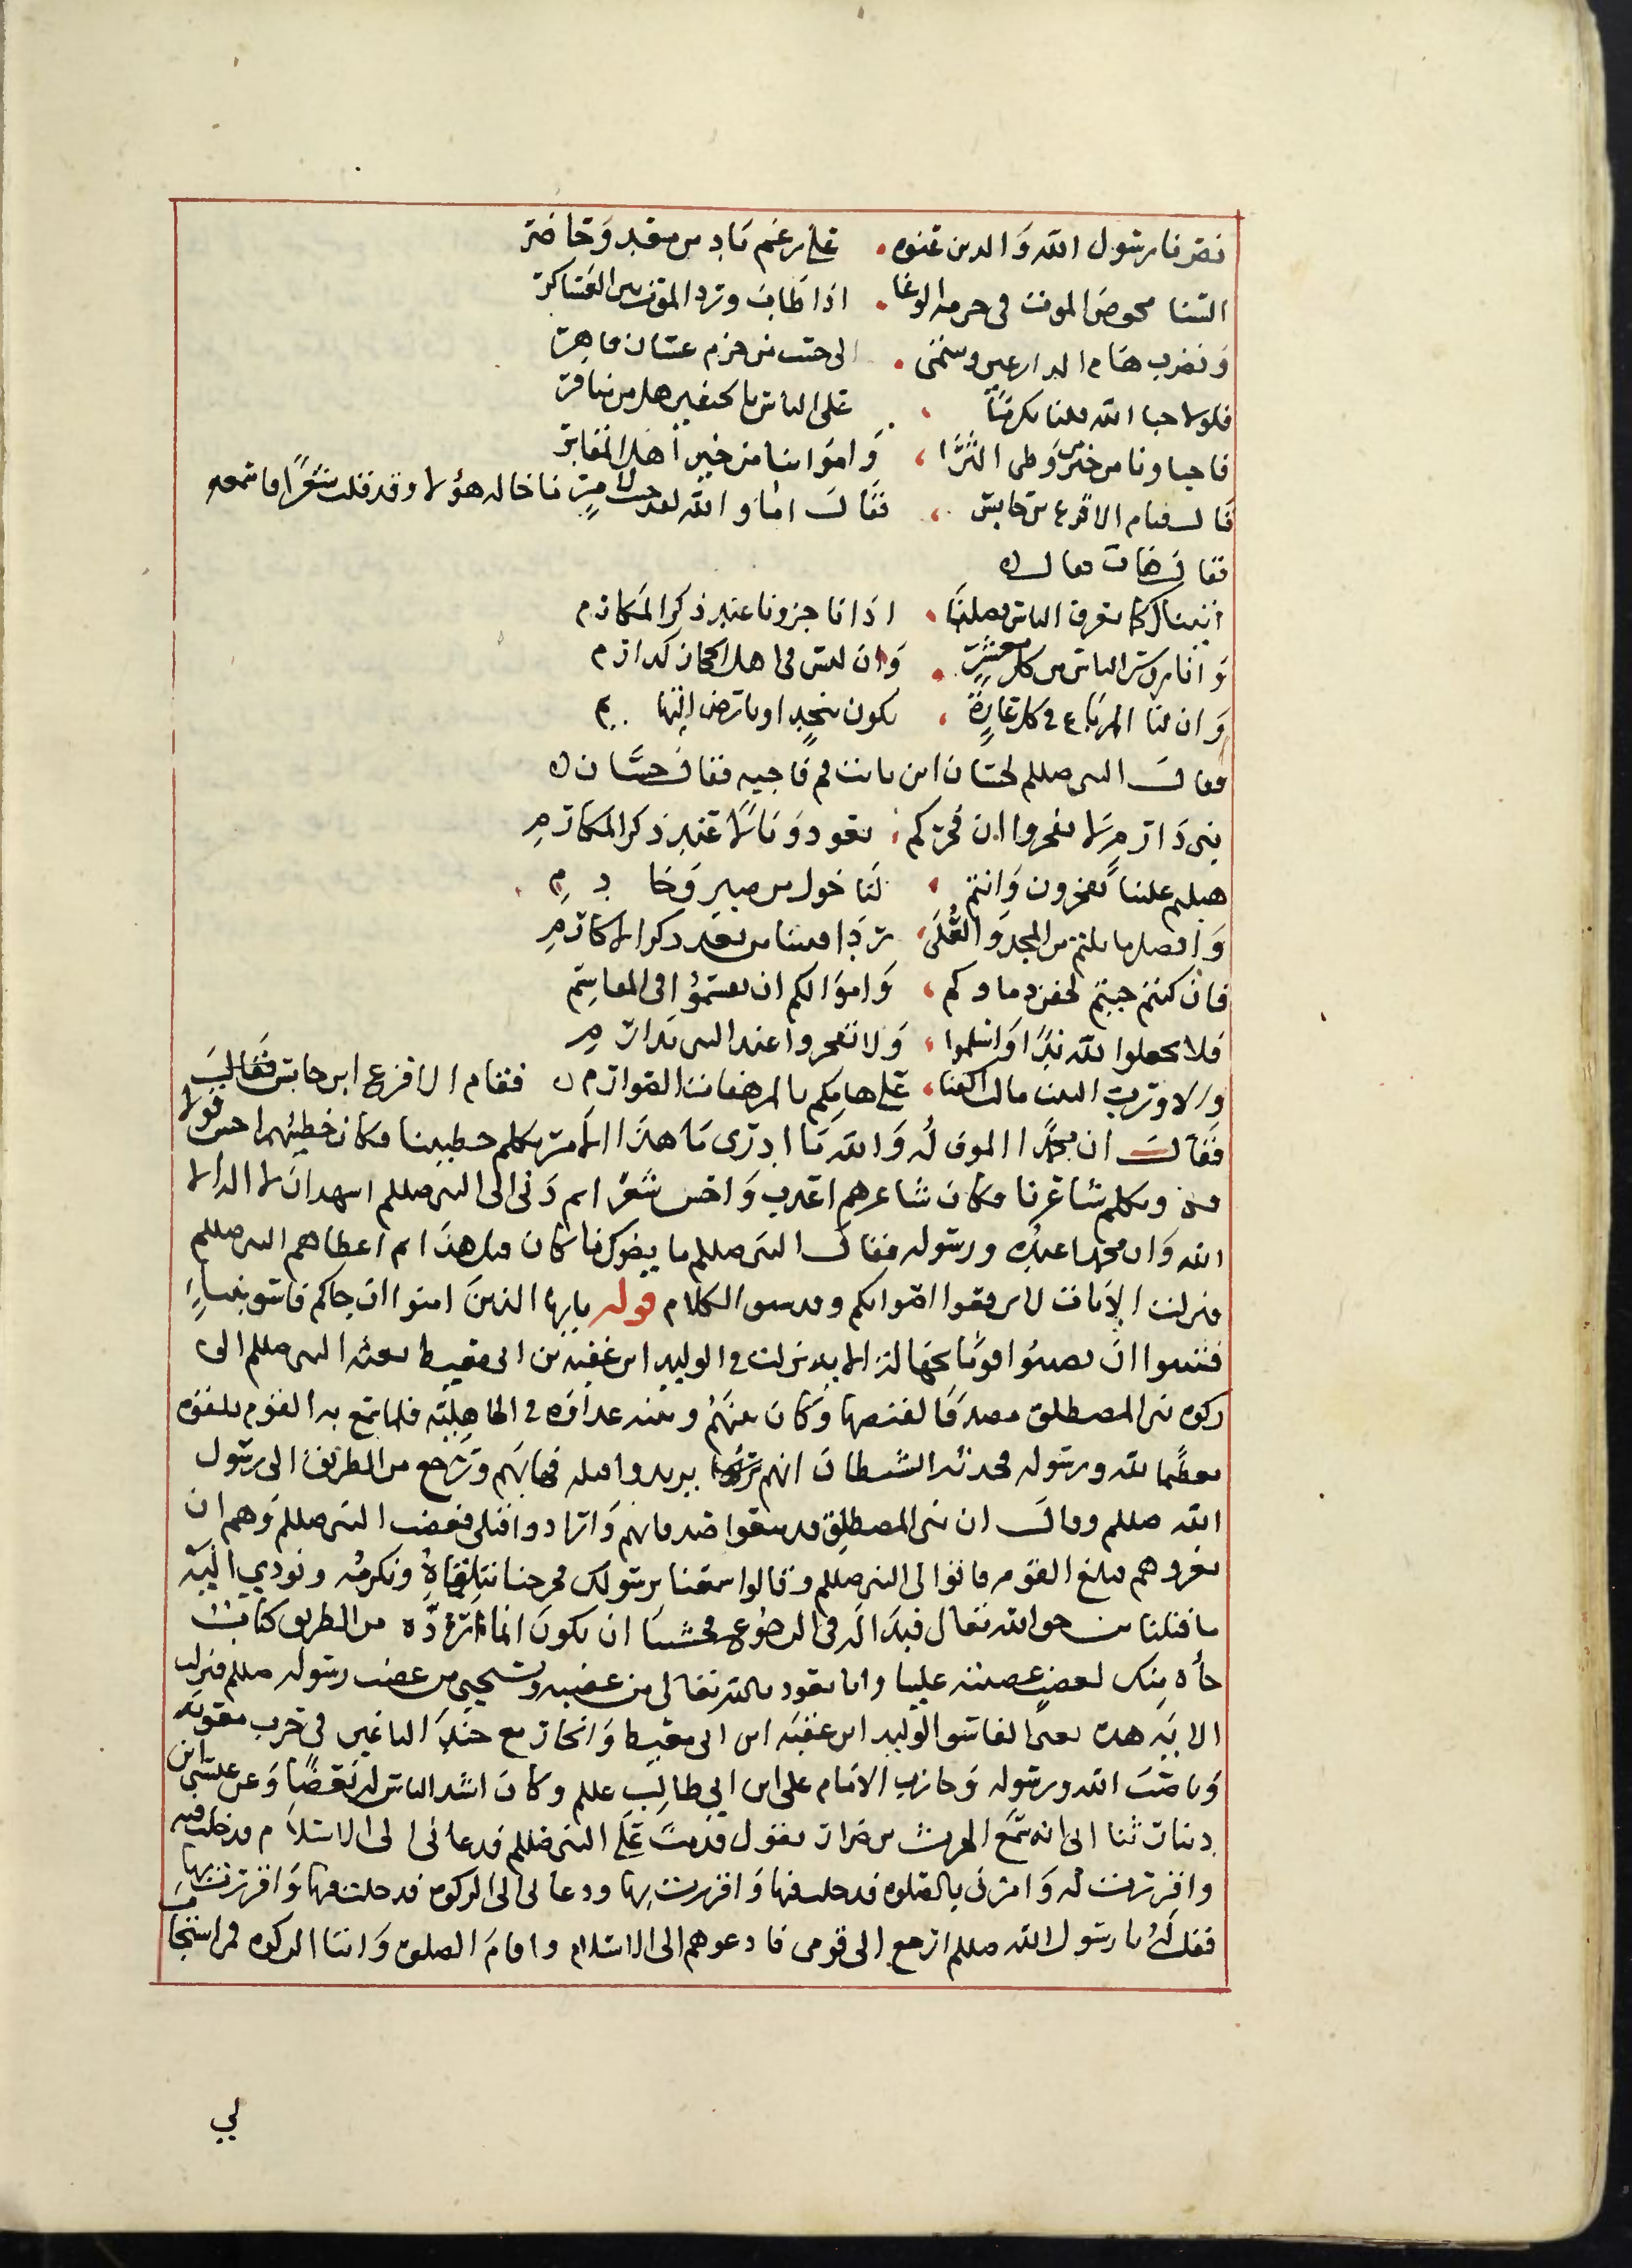 نصرنا رسول الله والدين عنوه . على رغم باد من معد وحاضر
السنا نخوض الموت في حومه الوغا . اذا طاب ورد الموت بين العساكر
ونضرب هام الدارعين وننتمي . الى حسب من جرم غسان قاهر
فلولا حيا الله قلنا تكرما ، على الناس بالخيفين هل من منافر
فاحياونا من خير من وطى الثرا ، وامواتنا من خير اهل المقابر
قال فقام الاقرع بن حابس ، فقال اما والله لقد جيت لامر ما جا له هؤلا وقد قلت شعرا فاسمعه
فقال هات فقال
اتيناك كيما تعرف الناس فضلنا . اذا فاخرونا عند ذكر المكارم
وانا روس الناس من كل معشر . وان ليس في اهل الحجاز كدارم
وان لنا المرباع في كل غارة ، تكون بنجد او بارض التهايم
فقال النبي صللم لحسان ابن ثابت قم فاجبه فقال حسان
بني دارم لا تفخروا ان فخركم ، يعود وبالا عند ذكر المكارم
هبلتم علينا تفخرون وانتم ، لنا خول من بين وخادم
وافضل ما نلتم من المجد والعلى ، ردافتنا من بعد ذكر الاكارم
فان كنتم جيتم لحقن دماوكم ، واموالكم ان تقسموا في المقاسم
فلا تجعلوا لله ندا واسلموا ، ولا تفخروا عند النبي بدارم
والا ورب البيت مالت اكفنا ، على هامكم بالمرهفات الصوارم فقام الاقرع ابن حابس فقال
فقال ان محمدا الموتى له والله ما ادري ما هذا الامر تكلم خطيبنا فكان خطيبهم احسن قولا
منه وتكلم شاعرنا فكان شاعرهم اعذب واحسن شعرا ثم دنى الى النبي صللم اشهد ان لا اله الا
الله وان محمدا عبده ورسوله فقال النبي صللم ما يضرك ما كان قبل هذا ثم اعطاهم النبي صللم
فنزلت الايات لا ترفعوا اصواتكم وقد سبق الكلام قوله يايها الذين امنوا ان جاكم فاسق بنباء
فتبينوا ان تصيبوا قوما بجهالة الايه نزلت في الوليد ابن عقبة بن ابي معيط بعثه النبي صللم الى
زكوه بني المصطلق مصدقا لقبضها وكان بينهم وبينه عداوة في الجاهلية فلما سمع به القوم تلقوه
تعظيما لله ورسوله فحدثه الشيطان انهم يريدوا قتله فهابهم ورجع من الطريق الى رسول
الله صللم وقال ان بني المصطلق قد منعوا صدقاتهم وارادوا قتلي فغضب النبي صللم وهم ان
يغزوهم فبلغ القوم فاتوا الى النبي صللم وقالوا سمعنا برسولك فخرجنا نتلقاه ونكرمه ونودي اليه
ما قبلنا من حق الله تعالى فبدا له في الرجوع فخشينا ان يكون انما رده من الطريق كتاب
جاه منك لغضب غضبته علينا وانا نعوذ بالله تعالى من غضبه وغضب رسوله صللم فنزلت
الايه هذه يعني الفاسق الوليد ابن عقبه ابن ابي معيط وانحاز مع جند الباغين في حزب معويه
وناصب الله ورسوله وحارب الامام علي ابن ابي طالب عللم وكان اشد الناس له بغضا وعن عيسى ابن
دينار ثنا ابي انه سمع الحرث بن ضرار يقول قدمت على النبي صللم فدعاني الى الاسلام فدخلت فيه
واقررت له وامرني بالصلوه فدخلت فيها واقررت بها ودعاني الى الزكوه فدخلت فيها واقررت بها
فقلت يا رسول الله صللم ارجع الى قومي فادعوهم الى الاسلام واقام الصلوة وايتا الزكوه فمن استجاب
لي